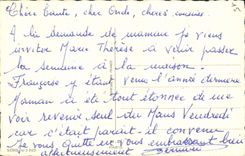 Chère tante, cher Oncle, chères cousines,
A la demande de maman je vous
invite Marie Thérèse à venir passer
la semaine à la maison.
Françoise y étant venu l'année dernière
Maman a été tout étonnée de me
voir revenir seul du Mans Vendredi
car c'était parait-il convenu
Je vous quitte en vous embrassant bien
affectueusement